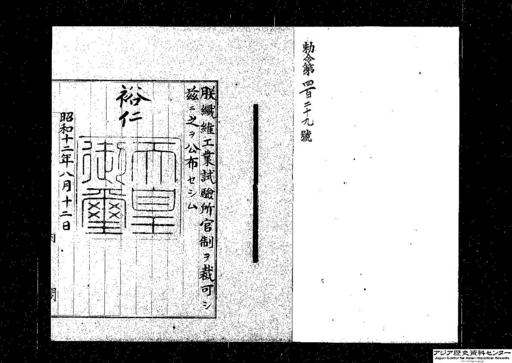 勅令第四百二十九號
朕纎維工業試驗所官制ヲ裁可シ
茲ニ之ヲ公布セシム
裕仁
天皇
御璽
昭和十二年八月十二日
アジア歴史資料センター
Japan Center for Asian Historical Records